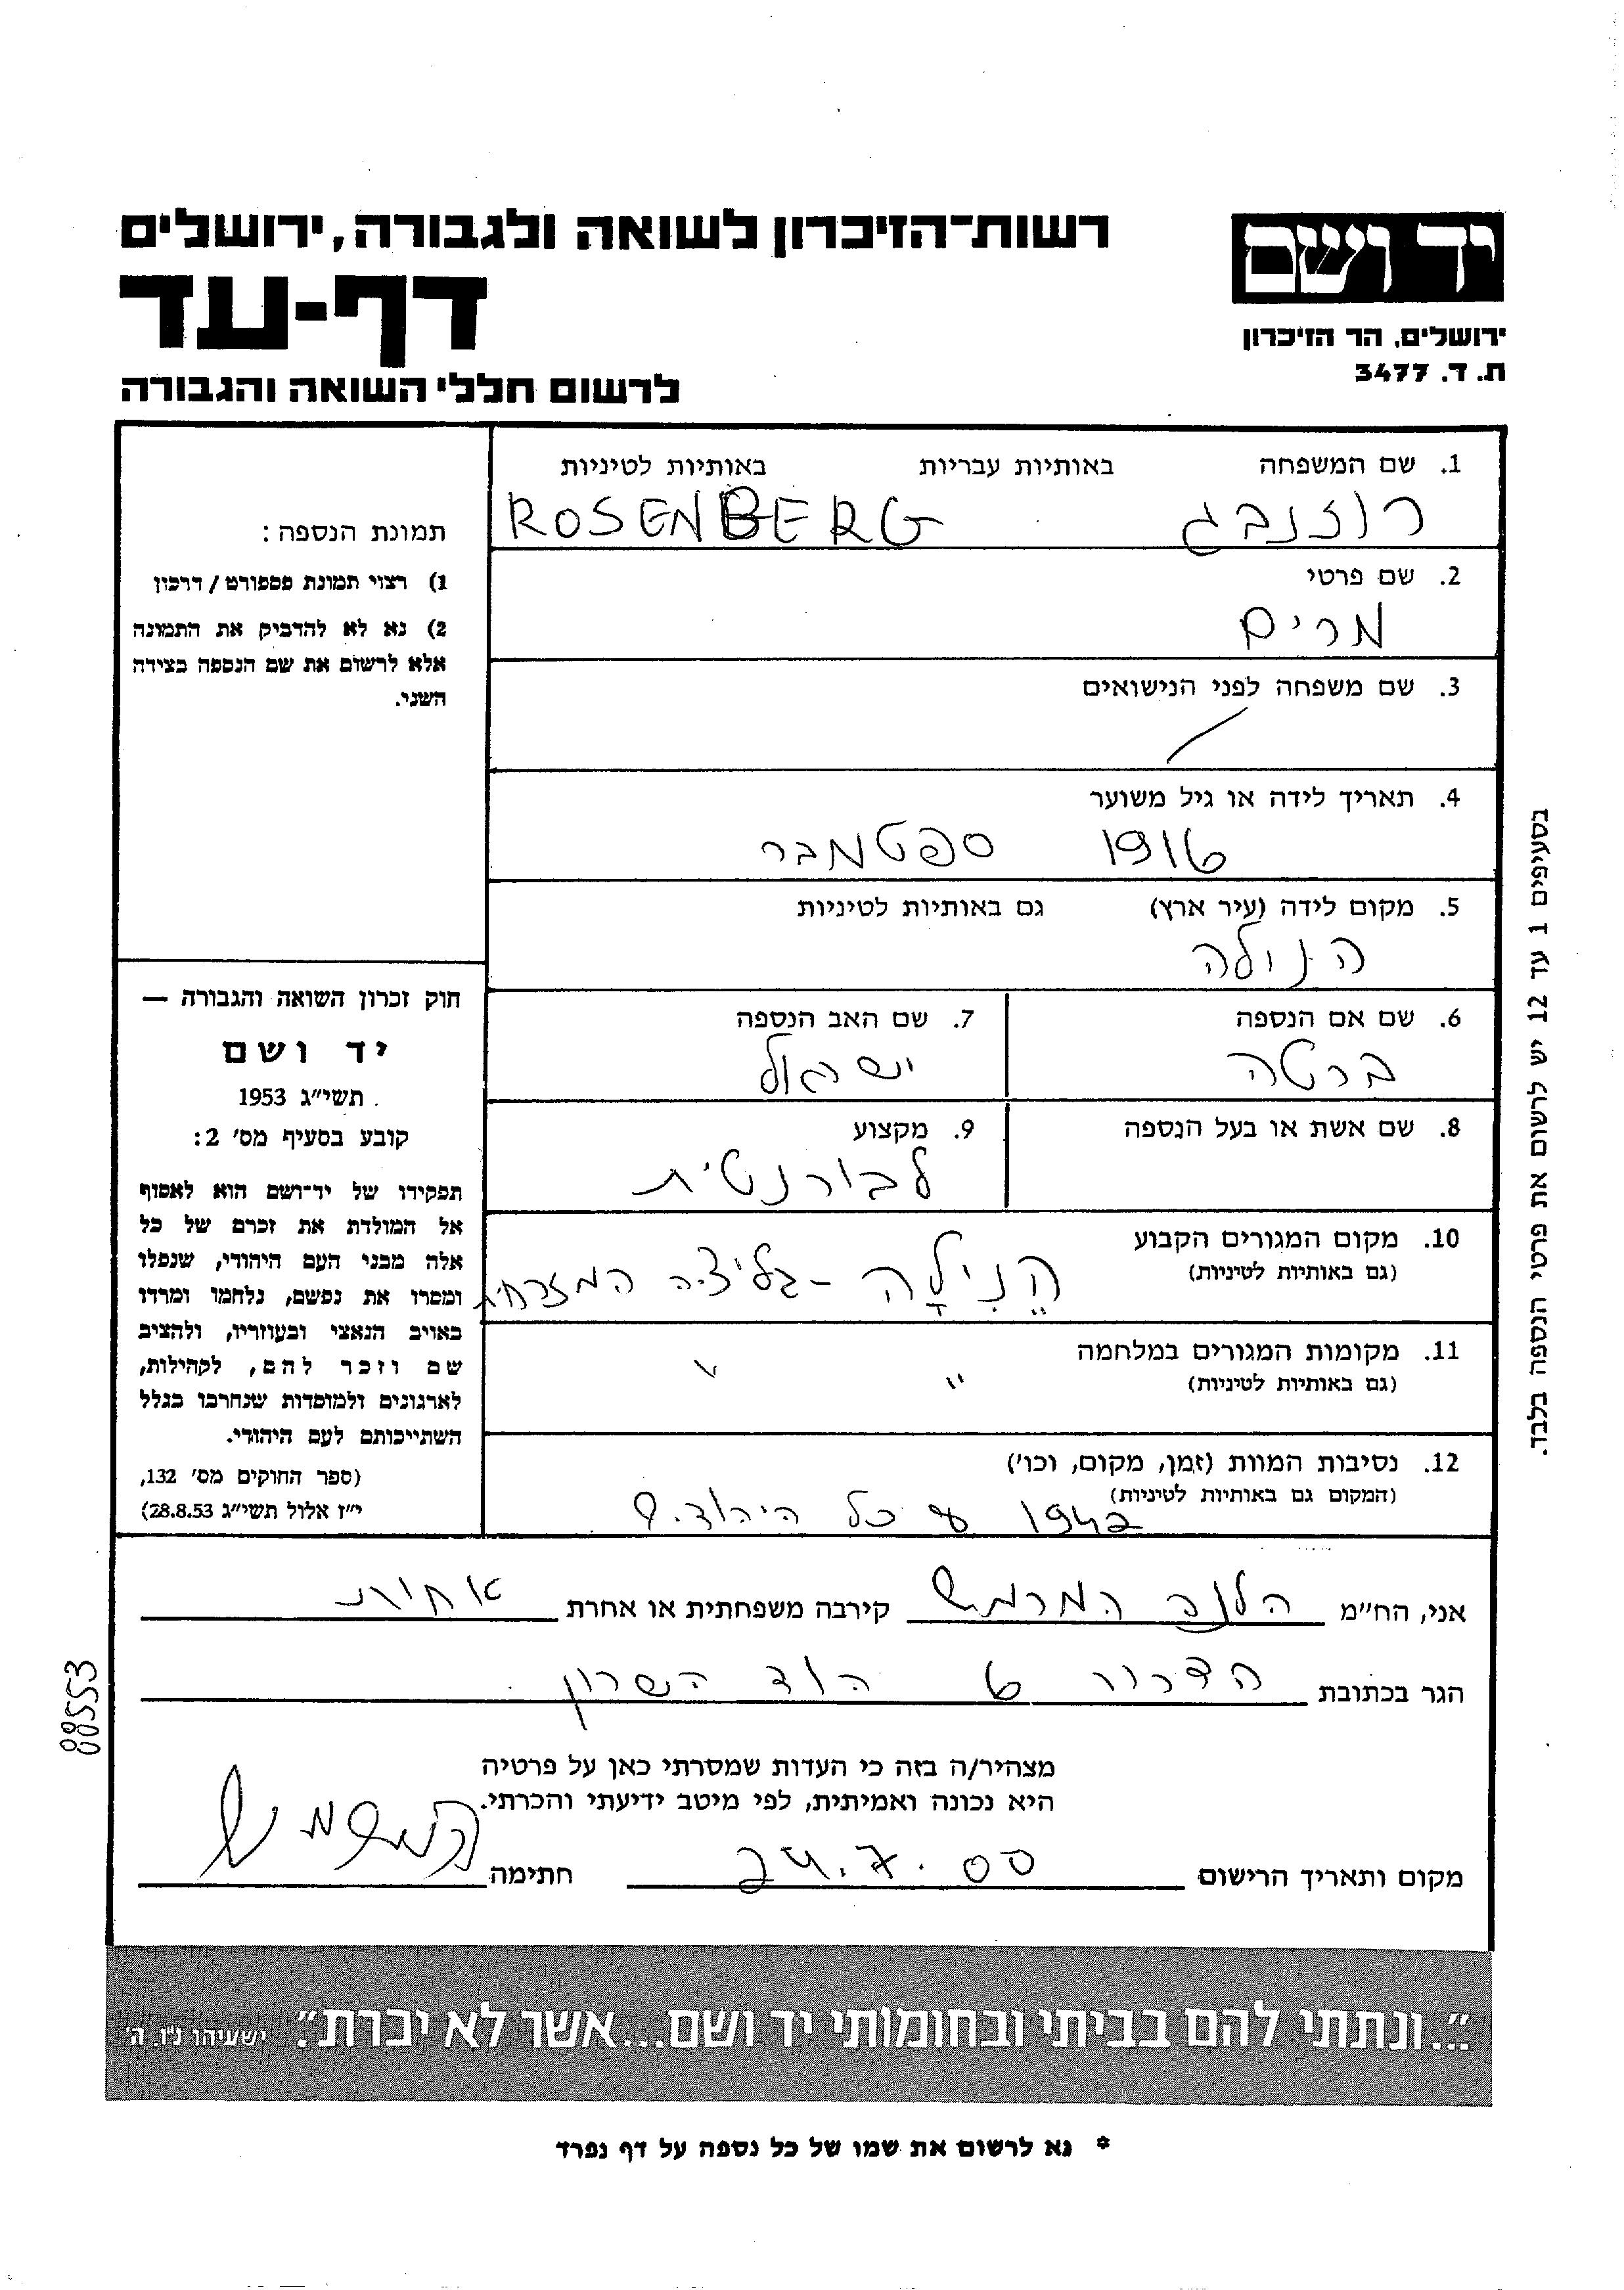 רשות־הזיכרון לשואה ולגבורה, ירושלים
דף-עד
לרשום חללי השואה והגבורה
יד ושם
ירושלים, הר הזיכרון
ת. ד. 3477
1. שם המשפחה באותיות עבריות באותיות לטיניות
רוזנבג ROSENBERG
2. שם פרטי
מרים
3. שם משפחה לפני הנישואים
4. תאריך לידה או גיל משוער
1916 ספטמבר
5. מקום לידה (עיר ארץ) גם באותיות לטיניות
הנולה
6. שם אם הנספה 7. שם האב הנספה
ברטה ישראל
8. שם אשת או בעל הנספה 9. מקצוע
לבורנטית
10. מקום המגורים הקבוע
(גם באותיות לטיניות)
הֱנִילָה - גליציה המזרחית
11. מקומות המגורים במלחמה
(גם באותיות לטיניות)
" "
12. נסיבות המוות (זמן, מקום, וכו')
(המקום גם באותיות לטיניות)
1942 עם כל היהודים
תמונת הנספה:
1) רצוי תמונת פספורט / דרכון
2) נא לא להדביק את התמונה
אלא לרשום את שם הנספה בצידה
השני.
חוק זכרון השואה והגבורה —
יד ושם
תשי"ג 1953
קובע בסעיף מס' 2:
תפקידו של יד־ושם הוא לאסוף
אל המולדת את זכרם של כל
אלה מבני העם היהודי, שנפלו
ומסרו את נפשם, נלחמו ומרדו
באויב הנאצי ובעוזריו, ולהציב
שם וזכר להם, לקהילות,
לארגונים ולמוסדות שנחרבו בגלל
השתייכותם לעם היהודי.
(ספר החוקים מס' 132,
י"ז אלול תשי"ג 28.8.53)
בסעיפים 1 עד 12 יש לרשום את פרטי הנספה בלבד.
אני, הח"מ הלנה קירבה משפחתית או אחרת אחות
הגר בכתובת הדרור 6 הוד השרון
מצהיר/ה בזה כי העדות שמסרתי כאן על פרטיה
היא נכונה ואמיתית, לפי מיטב ידיעתי והכרתי.
מקום ותאריך הרישום 24.7.00 חתימה
08553
"...ונתתי להם בביתי ובחומותי יד ושם...אשר לא יכרת". ישעיהו נ"ו, ה'
* נא לרשום את שמו של כל נספה על דף נפרד